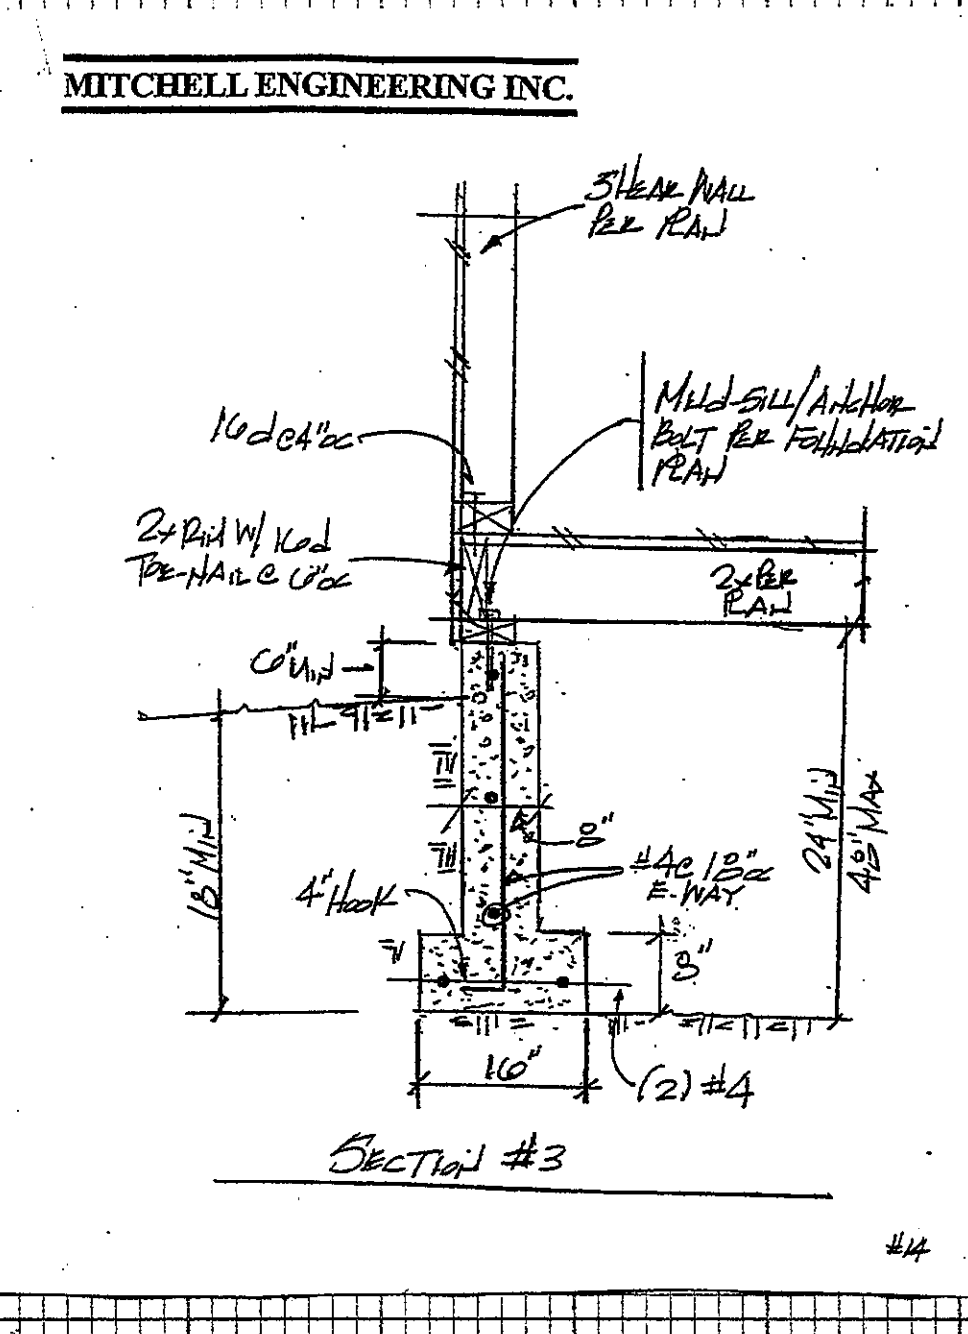 MITCHELL ENGINEERING INC.
SHEAR WALL
PER PLAN
16d @ 4" oc
MUD-SILL/ANCHOR
BOLT PER FOUNDATION
PLAN
2x RIM W/ 16d
TOE-NAIL @ 6" oc
2x PER
PLAN
6" MIN
18" MIN
24" MIN
48" MAX
8"
#4 @ 18" oc
E-WAY
4" HOOK
8"
16"
(2) #4
SECTION #3
#14